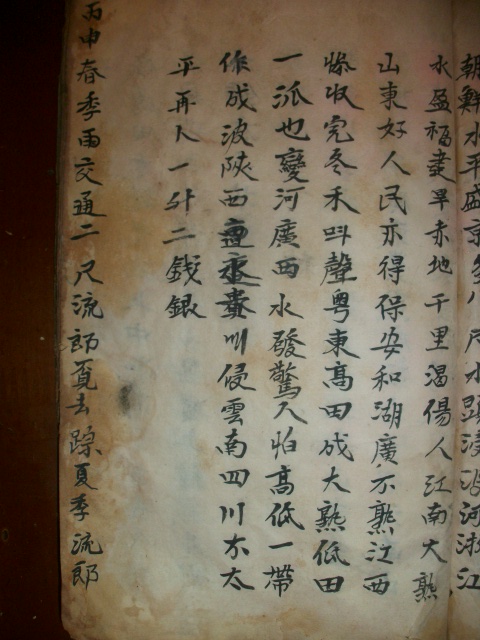 朝鮮水平盛京多八尺水頭浸波河浙江
水盈福建旱赤地千里渴傷人江南大熟
山東好人民亦得保安和湖廣不熟江西
收完冬禾叫聲粵東高田成大熟低田
一派也變河廣西水發驚人怕高低一帶
作成波陝西川侵雲南四川不太
平再卜一外二錢銀
丙申春季雨交通二尺流郎覓去踪夏季流郎